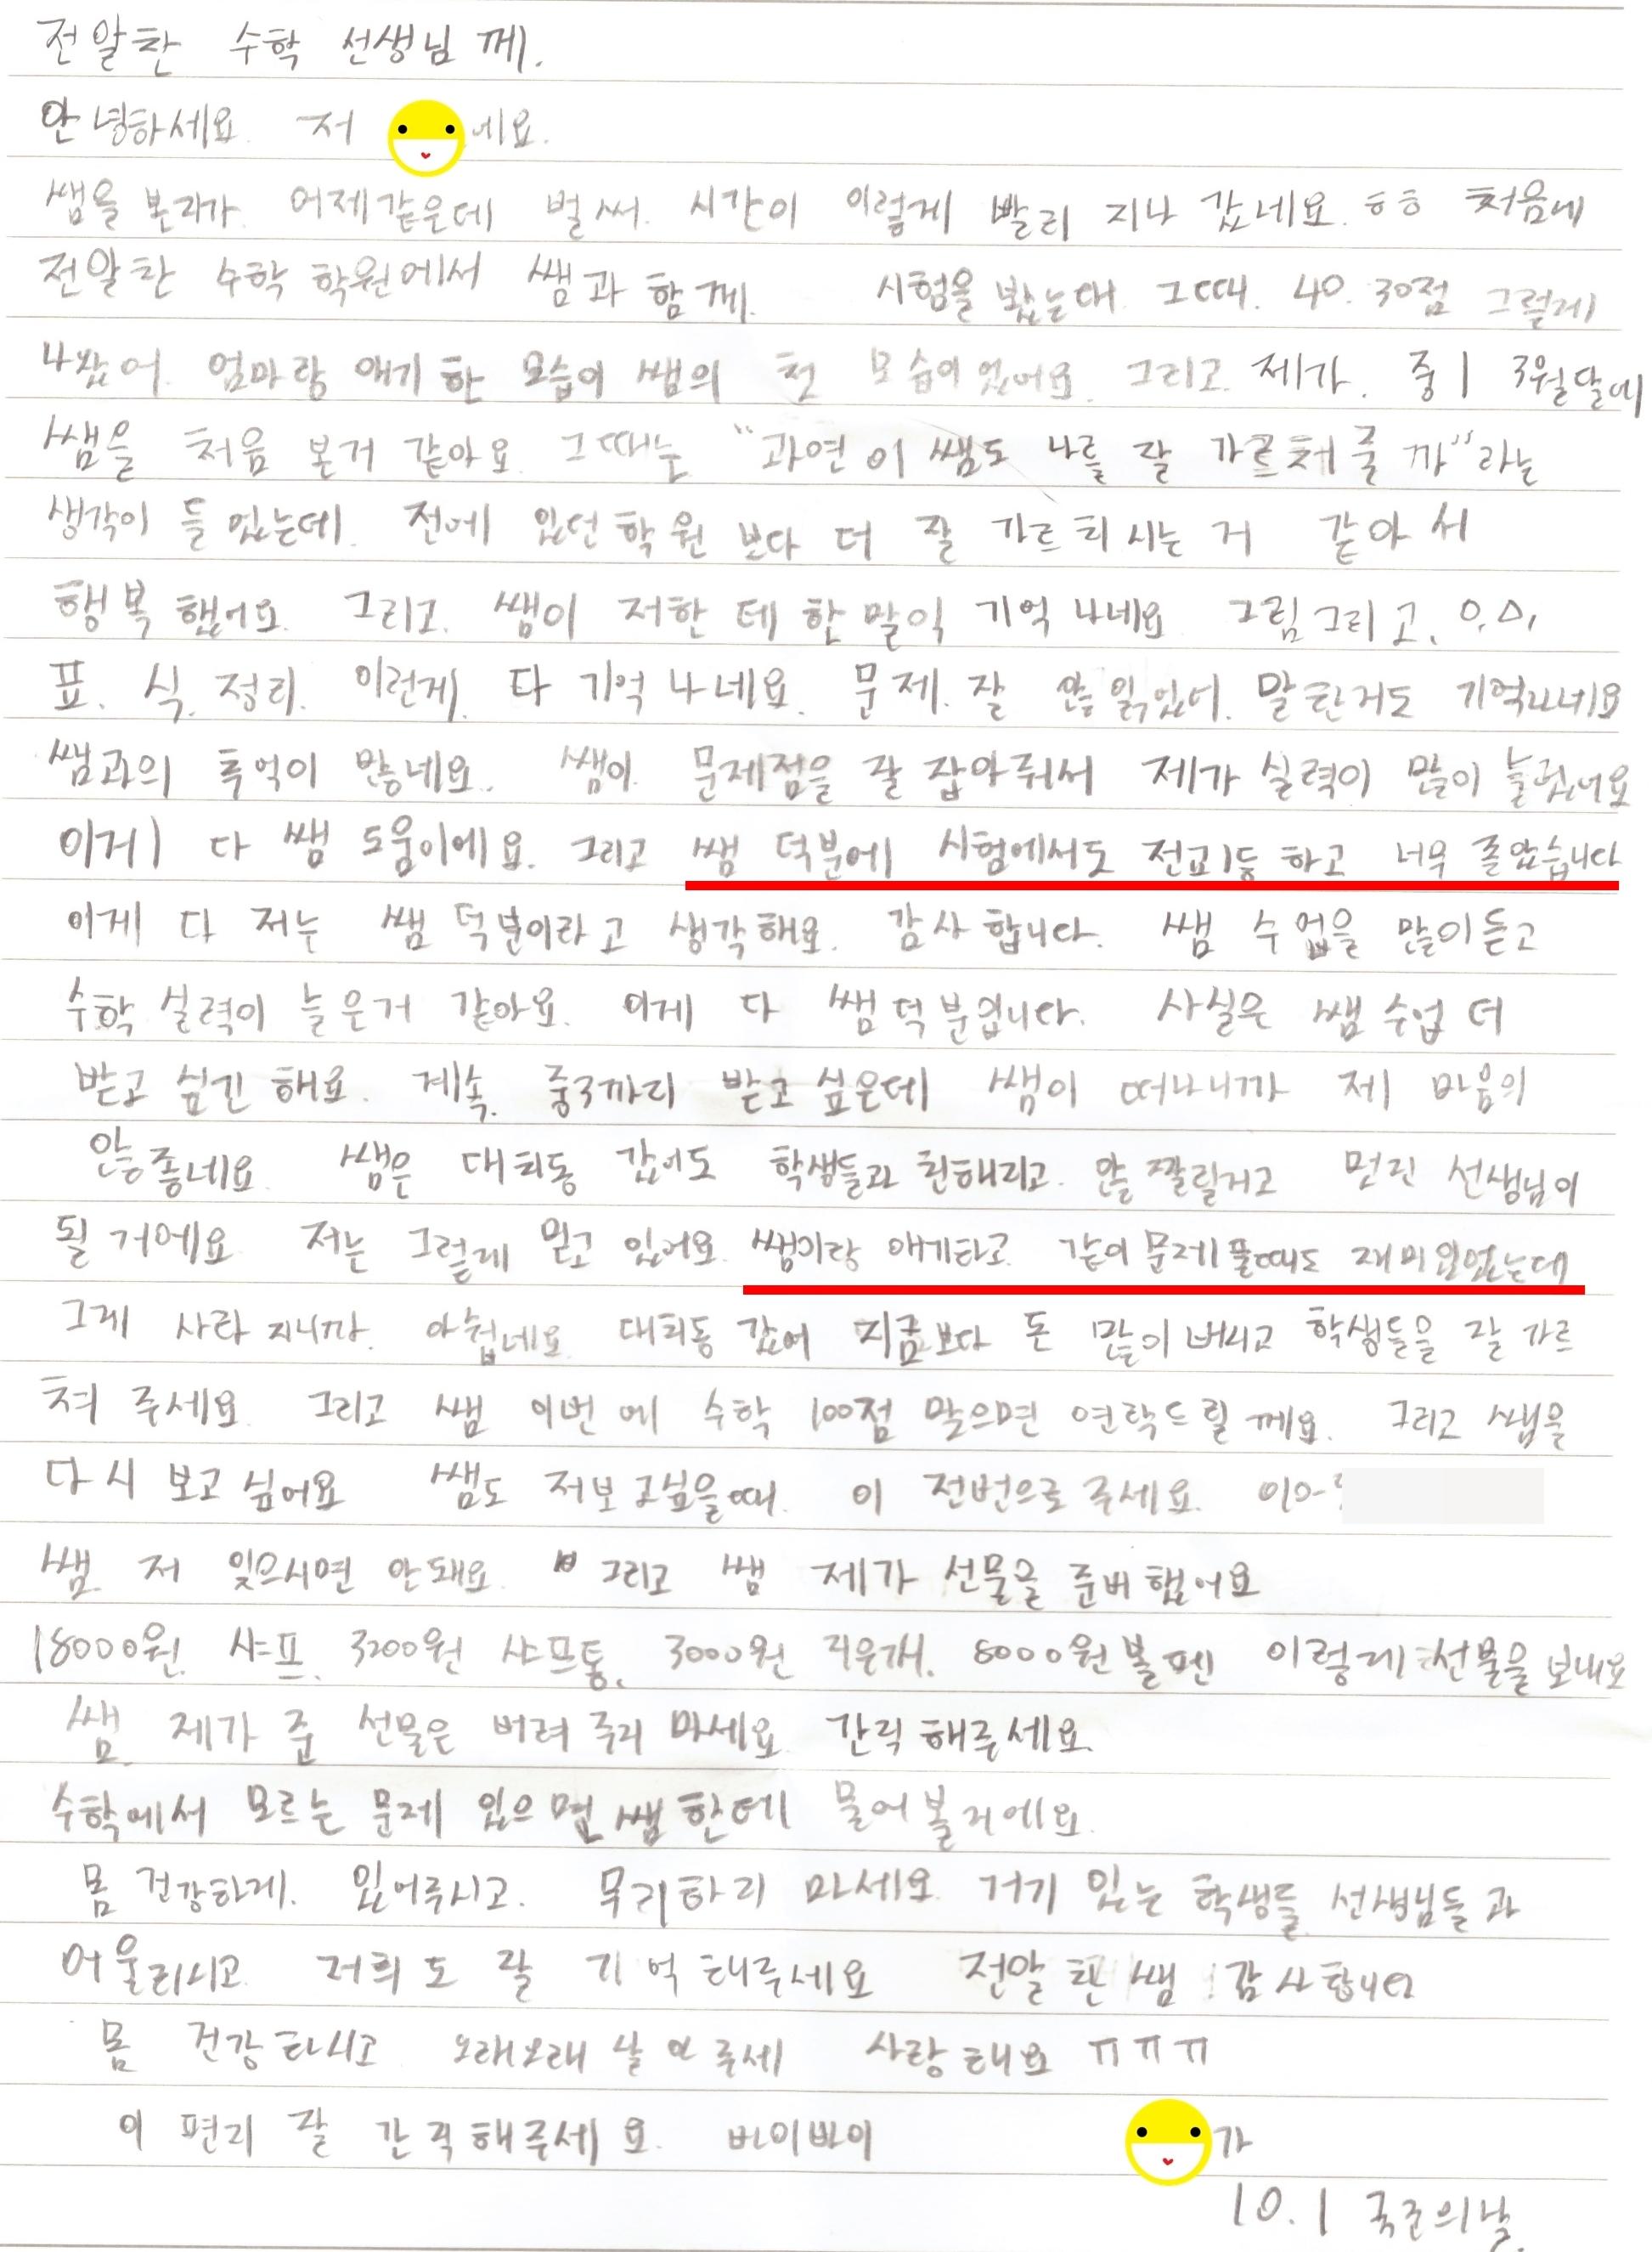 전알찬 수학 선생님께.
안녕하세요. 저 에요.
쌤을 본지가 어제같은데 벌써. 시간이 이렇게 빨리 지나 갔네요. ㅎㅎ 처음에
전알찬 수학 학원에서 쌤과 함께. 시험을 봤는대 그때. 40. 30점 그렇게
나왔어. 엄마랑 얘기 한 모습이 쌤의 첫 모습이었어요. 그리고. 제가. 중1 3월달에
쌤을 처음 본거 같아요. 그때는 "과연 이 쌤도 나를 잘 가르처 줄까"라는
생각이 들었는데. 전에 있던 학원 보다 더 잘 가르치시는 거 같아서
행복했어요. 그리고. 쌤이 저한테 한 말이 기억 나네요. 그림그리고. ㅇ,△,
표. 식. 정리. 이런게. 다 기억 나네요. 문제. 잘 안 읽었어. 말한거도 기억나네요
쌤과의 추억이 많네요. 쌤이. 문제점을 잘 잡아줘서 제가 실력이 많이 늘었어요
이게 다 쌤 도움이에요. 그리고 쌤 덕분에 시험에서도 전교1등 하고 너무 좋았습니다
이게 다 저는 쌤 덕분이라고 생각해요. 감사합니다. 쌤 수업을 많이듣고
수학 실력이 늘은거 같아요. 이게 다 쌤덕분입니다. 사실은 쌤 수업 더
받고 싶긴 해요. 계속. 중3까지 받고 싶은데 쌤이 떠나니까 제 마음의
안좋네요. 쌤은 대치동 갔어도 학생들과 친해지고. 안 짤릴거고 멋진 선생님이
될 거에요. 저는 그렇게 믿고 있어요. 쌤이랑 얘기하고. 같이 문제 풀때도 재미있었는데
그게 사라지니까. 아쉽네요. 대치동 갔어 지금보다 돈 많이 버시고 학생들을 잘 가르
쳐 주세요. 그리고 쌤 이번에 수학 100점 맞으면 연락드릴께요. 그리고 쌤을
다시 보고싶어요 쌤도 저보고싶을때. 이 전번으로 주세요.
쌤. 저 잊으시면 안돼요. 그리고 쌤 제가 선물을 준비했어요
18000원 샤프. 3200원 샤프통. 3000원 지우개. 8000원볼펜 이렇게 선물을 보내요
쌤. 제가 준 선물은 버려 주지 마세요. 간직해주세요.
수학에서 모르는 문제 있으면 쌤한테 물어볼거에요.
몸 건강하게. 있어주시고. 무리하지 마세요. 거기 있는 학생들 선생님들과
어울리시고. 저희도 잘 기억해주세요 전알찬쌤 감사합니다
몸 건강하시고 오래오래 살아주세 사랑해요 ㅠㅠㅠ
이 편지 잘 간직해주세요. 바이바이 가
10. 1 국군의날.